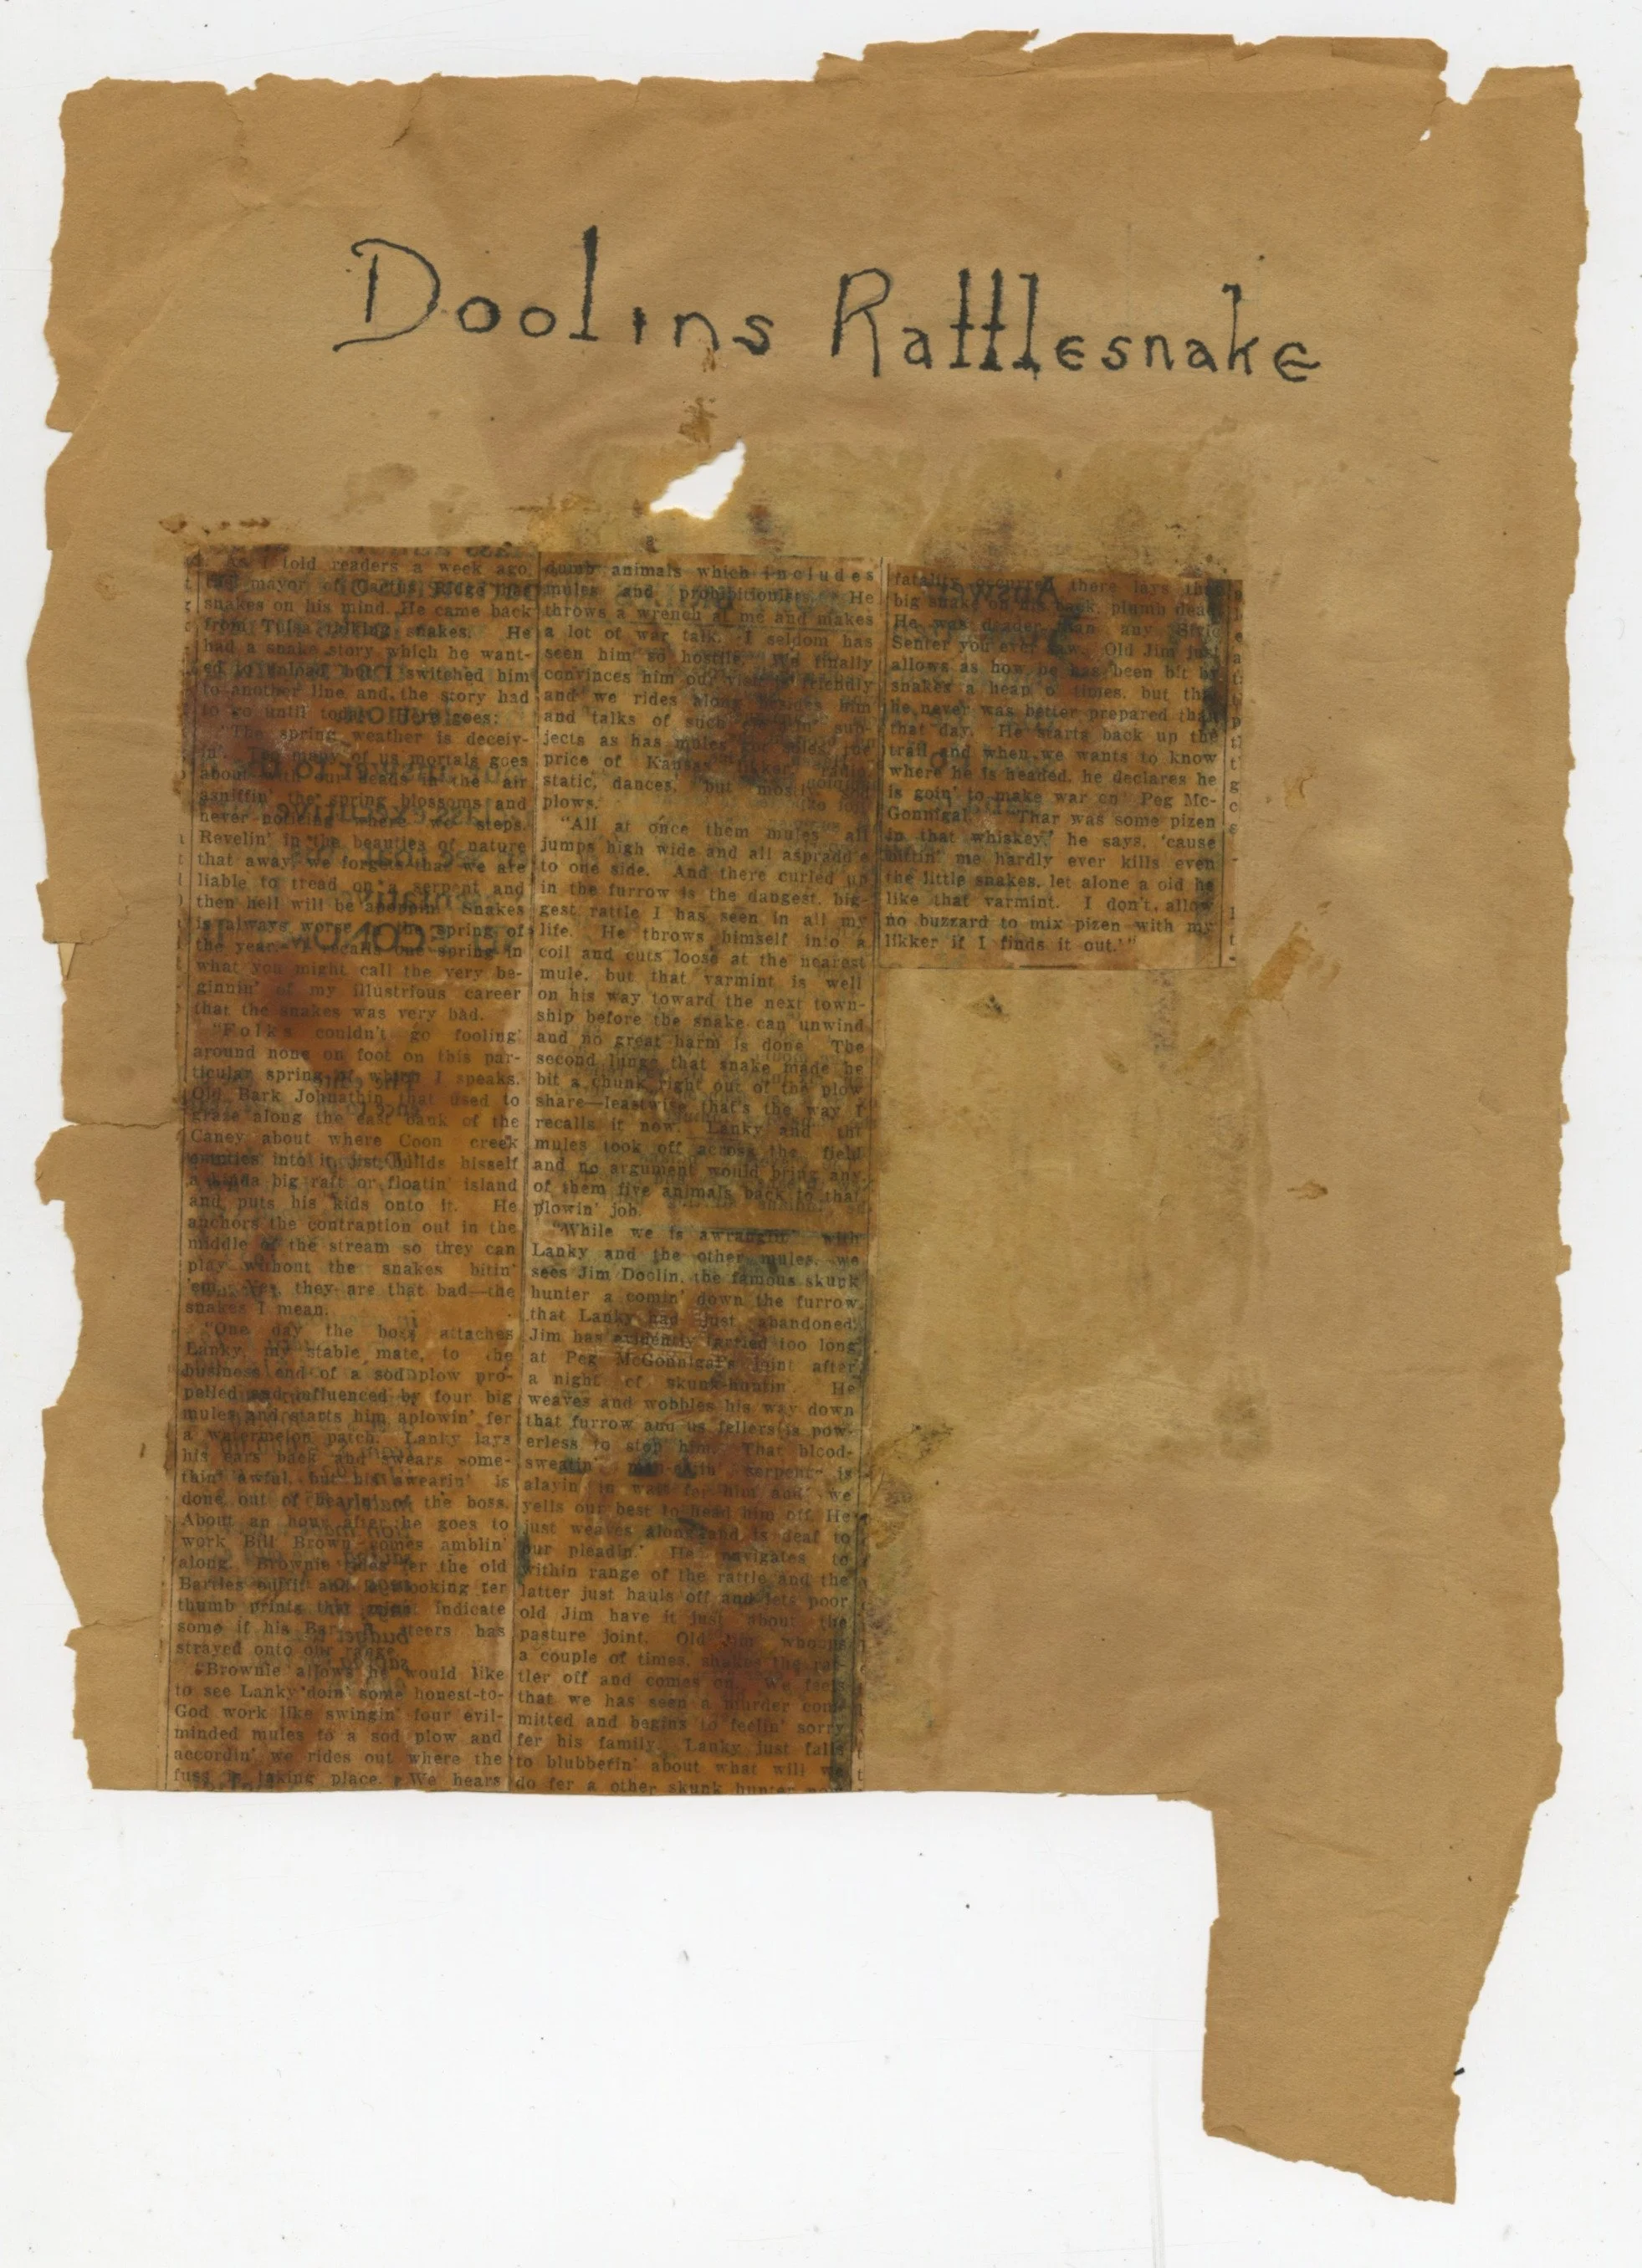 Doolins Rattlesnake
As I told readers a week ago,
the mayor of Cactus Ridge had
snakes on his mind. He came back
from Tulsa talking snakes. He
had a snake story which he want-
ed to unload but I switched him
to another line and the story had
to go until today. Here goes:
"The spring weather is deceiv-
in'. Too many of us mortals goes
about with our heads in the air
asniffin' the spring blossoms and
never noticing where we steps.
Revelin' in the beauties of nature
that away, we forgets that we are
liable to tread on a serpent and
then hell will be apoppin'. Snakes
is always worse in the spring of
the year. I recalls one spring in
what you might call the very be-
ginnin' of my illustrious career
that the snakes was very bad.
"Folks couldn't go fooling
around none on foot on this par-
ticular spring of which I speaks.
Old Bark Johnathin that used to
graze along the east bank of the
Caney about where Coon creek
empties into it, just builds hisself
a kinda big raft or floatin' island
and puts his kids onto it. He
anchors the contraption out in the
middle of the stream so they can
play without the snakes bitin'
'em. Yes, they are that bad—the
snakes I mean.
"One day the boss attaches
Lanky, my stable mate, to the
business end of a sod plow pro-
pelled and influenced by four big
mules and starts him aplowin' fer
a watermelon patch. Lanky lays
his ears back and swears some-
thin' awful, but his swearin' is
done out of hearin' of the boss.
About an hour after he goes to
work Bill Brown comes amblin'
along. Brownie rides fer the old
Bartles outfit and is looking fer
thumb prints that might indicate
some if his Bar steers has
strayed onto our range.
"Brownie allows he would like
to see Lanky doin' some honest-to-
God work like swingin' four evil-
minded mules to a sod plow and
accordin' we rides out where the
fuss is taking place. We hears
dumb animals which includes
mules and prohibitionists. He
throws a wrench at me and makes
a lot of war talk. I seldom has
seen him so hostile. We finally
convinces him our visit is friendly
and we rides along besides him
and talks of such sub-
jects as has mules got souls, the
price of Kansas likker, radio
static, dances, but mostly
plows.
"All at once them mules all
jumps high wide and all aspraddle
to one side. And there curled up
in the furrow is the dangest, big-
gest rattle I has seen in all my
life. He throws himself into a
coil and cuts loose at the nearest
mule, but that varmint is well
on his way toward the next town-
ship before the snake can unwind
and no great harm is done. The
second lunge that snake made he
bit a chunk right out of the plow
share—leastwise that's the way I
recalls it now. Lanky and the
mules took off across the field
and no argument would bring any
of them five animals back to that
plowin' job.
"While we is awranglin' with
Lanky and the other mules, we
sees Jim Doolin, the famous skunk
hunter a comin' down the furrow
that Lanky had just abandoned.
Jim has evidently tarried too long
at Peg McGonnigal's joint after
a night of skunk-huntin'. He
weaves and wobbles his way down
that furrow and us fellers is pow-
erless to stop him. That blood-
sweatin' man-eatin' serpent is
alayin' in wait fer him and we
yells our best to head him off. He
just weaves along and is deaf to
our pleadin.' He navigates to
within range of the rattle and the
latter just hauls off and lets poor
old Jim have it just about the
pasture joint. Old Jim whoops
a couple of times, shakes the rat-
tler off and comes on. We feels
that we has seen a murder com-
mitted and begins to feelin' sorry
fer his family. Lanky just falls
to blubberin' about what will we
do fer a other skunk hunter now
fatality occurred there lays that
big snake on his back, plumb dead.
He was deader than any
Senter you ever saw. Old Jim just
allows as how he has been bit by
snakes a heap o' times, but that
he never was better prepared than
that day. He starts back up the
trail and when we wants to know
where he is headed, he declares he
is goin' to make war on Peg Mc-
Gonnigal. 'Thar was some pizen
in that whiskey,' he says, 'cause
bittin' me hardly ever kills even
the little snakes, let alone a old he
like that varmint. I don't allow
no buzzard to mix pizen with my
likker if I finds it out.'"